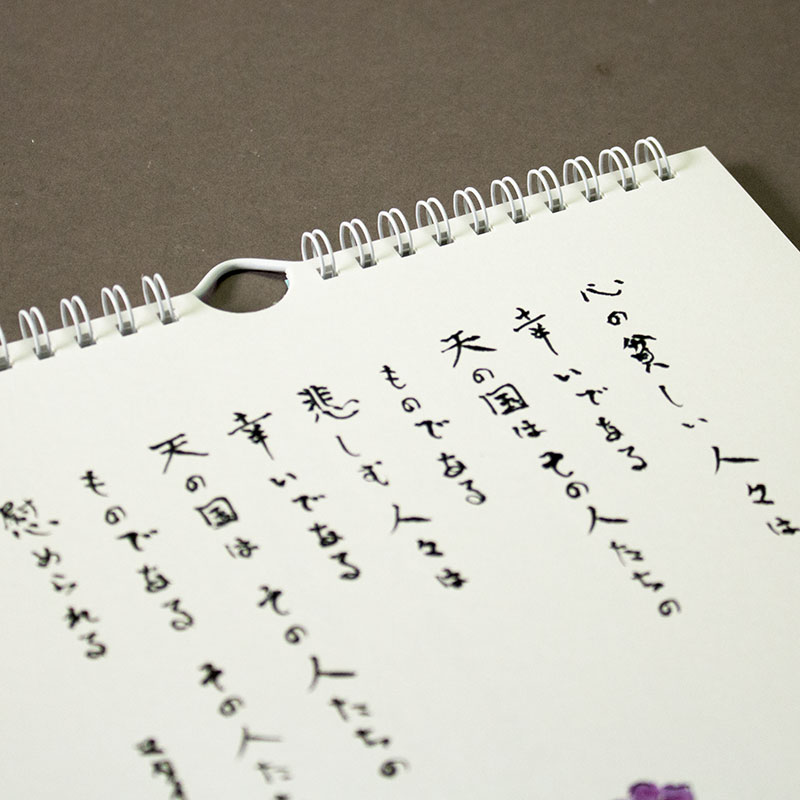 心の貧しい人々は
幸いである
天の国はその人たちの
ものである
悲しむ人々は
幸いである
天の国は その人たちの
ものである その人た
慰められる